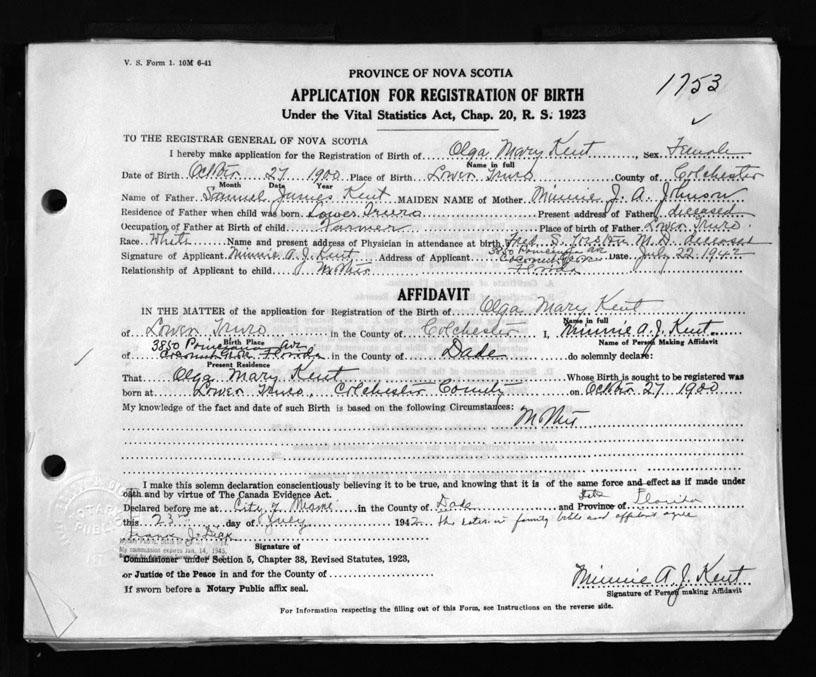 V. S. Form 1. 10M 6-41
1753
PROVINCE OF NOVA SCOTIA
APPLICATION FOR REGISTRATION OF BIRTH
Under the Vital Statistics Act, Chap. 20, R. S. 1923
TO THE REGISTRAR GENERAL OF NOVA SCOTIA
I hereby make application for the Registration of Birth of Olga Mary Kent, Sex Female
Name in full
Date of Birth October 27 1900 Place of Birth Lower Truro County of Colchester
Month Date Year
Name of Father Samuel James Kent MAIDEN NAME of Mother Minnie J. A. Johnson
Residence of Father when child was born Lower Truro Present address of Father deceased
Occupation of Father at Birth of child Farmer Place of birth of Father Lower Truro
Race White Name and present address of Physician in attendance at birth Fred S. M.D. deceased
Signature of Applicant Minnie A. J. Kent Address of Applicant 3850 Poinciana Ave Cocoanut Grove Florida Date July 22 1942
Relationship of Applicant to child Mother
AFFIDAVIT
IN THE MATTER of the application for Registration of the Birth of Olga Mary Kent
Name in full
of Lower Truro in the County of Colchester I, Minnie A. J. Kent
Birth Place Name of Person Making Affidavit
of 3850 Poinciana Ave Cocoanut Grove Florida in the County of Dade do solemnly declare:
Present Residence
That Olga Mary Kent Whose Birth is sought to be registered was
born at Lower Truro, Colchester County on October 27 1900
My knowledge of the fact and date of such Birth is based on the following Circumstances:
Mother
I make this solemn declaration conscientiously believing it to be true, and knowing that it is of the same force and effect as if made under
oath and by virtue of The Canada Evidence Act.
Declared before me at City of Miami in the County of Dade and Province of State Florida
this 23 day of July 1942 the dates in family bible and affidavit agree
My commission expires Jan. 14, 1945.
Signature of
Commissioner under Section 5, Chapter 38, Revised Statutes, 1923,
or Justice of the Peace in and for the County of
If sworn before a Notary Public affix seal.
Minnie A. J. Kent
Signature of Person making Affidavit
For Information respecting the filling out of this Form, see Instructions on the reverse side.